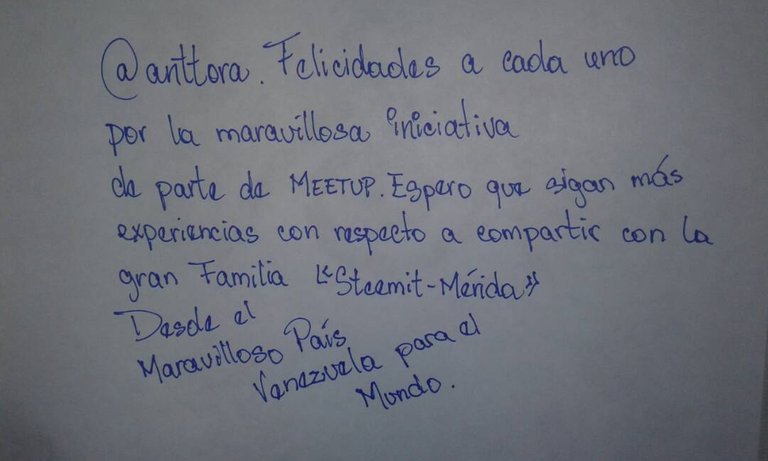 @anttora. Felicidades a cada uno
por la maravillosa iniciativa
de parte de MEETUP. Espero que sigan más
experiencias con respecto a compartir con la
gran Familia "Steemit-Mérida"
Desde el
Maravilloso País
Venezuela para el
Mundo.